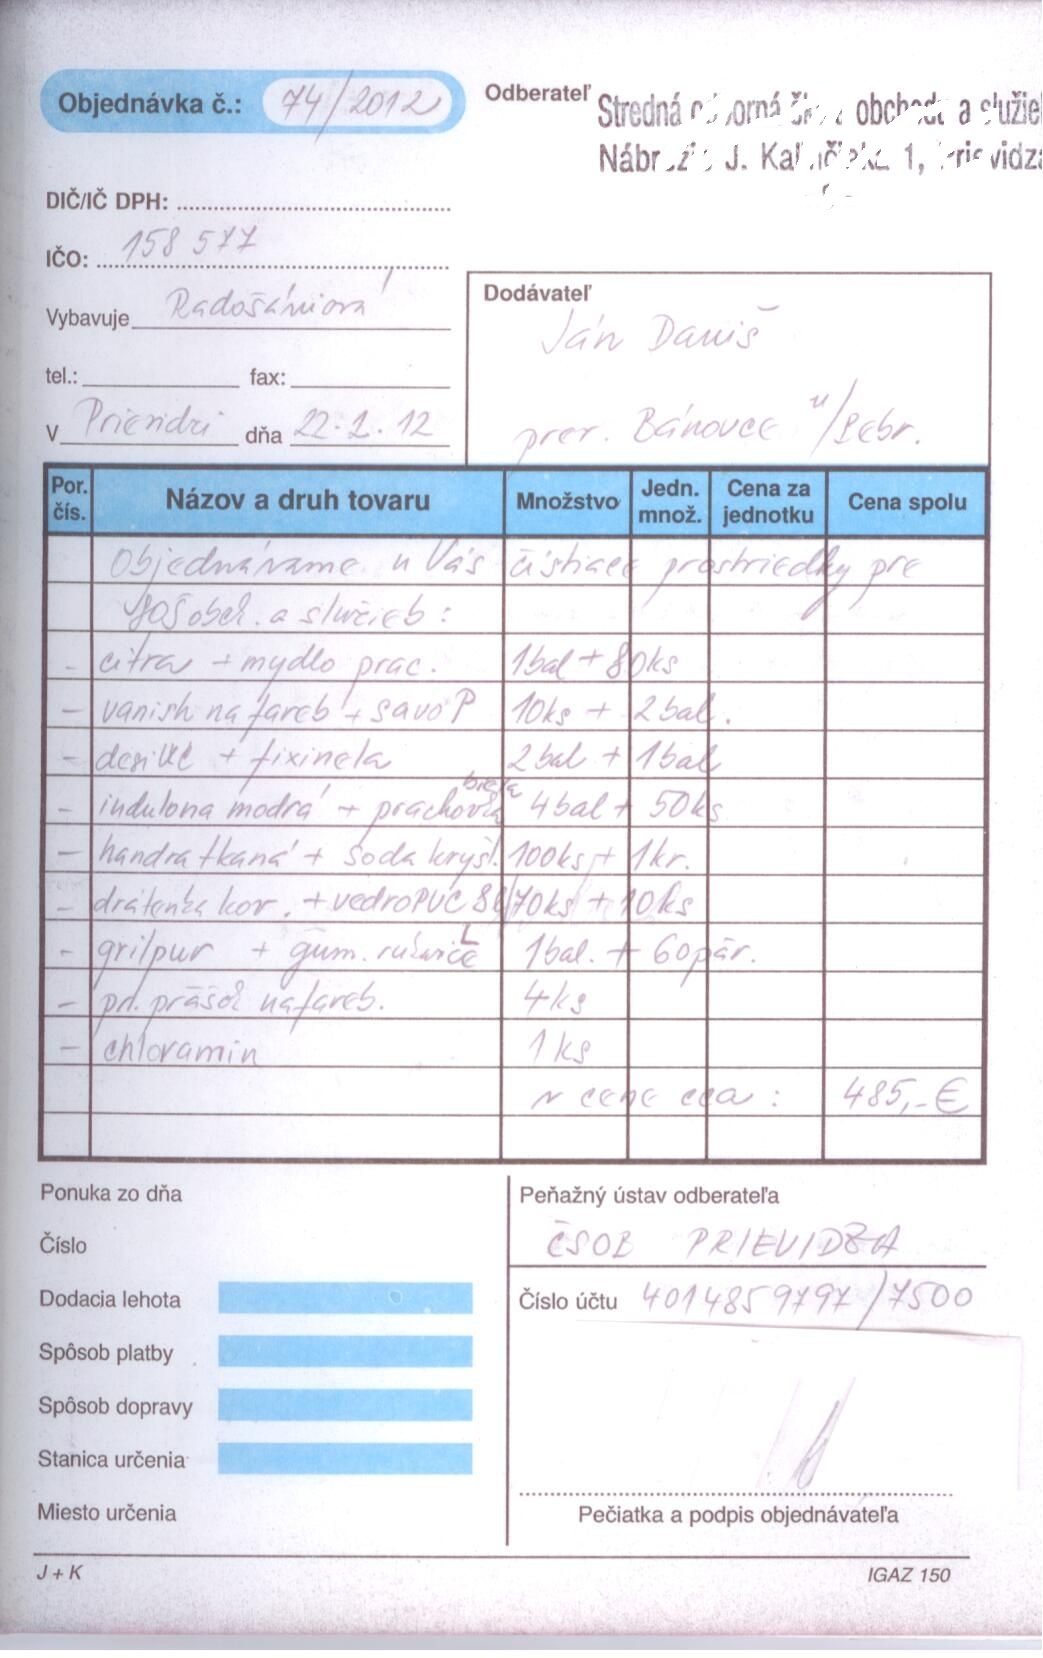 Objednávka č.: 74/2012
Odberateľ
Stredná odborná škola obchodu a služieb
Nábrežie J. Kalinčiaka 1, Prievidza
DIČ/IČ DPH:
IČO: 158 577
Vybavuje Radošániová
tel.: fax:
V Prievidzi dňa 22.2.12
Dodávateľ
Ján Daniš
prev. Bánovce n/Bebr.
Por. čís. Názov a druh tovaru Množstvo Jedn. množ. Cena za jednotku Cena spolu
Objednávame u Vás čistiace prostriedky pre
SOŠ obch. a služieb:
- citra + mydlo prac. 1bal + 80ks
- vanish na fareb + savo P 10ks + 2bal.
- desiWC + fixinela 2bal + 1bal
- indulona modrá + prachovka 4bal + 50ks
- handra tkaná + soda kryšt. 100ks + 1kr.
- drátenka kov. + vedro PVC 8l 70ks + 10ks
- grilpur + gum. rukavice L 1bal. + 60pár.
- pr. prášok na fareb. 4ks
- chloramin 1ks
v cene cca: 485,-€
Ponuka zo dňa
Číslo
Dodacia lehota
Spôsob platby
Spôsob dopravy
Stanica určenia
Miesto určenia
Peňažný ústav odberateľa
ČSOB PRIEVIDZA
Číslo účtu 4014859797/7500
Pečiatka a podpis objednávateľa
J + K IGAZ 150